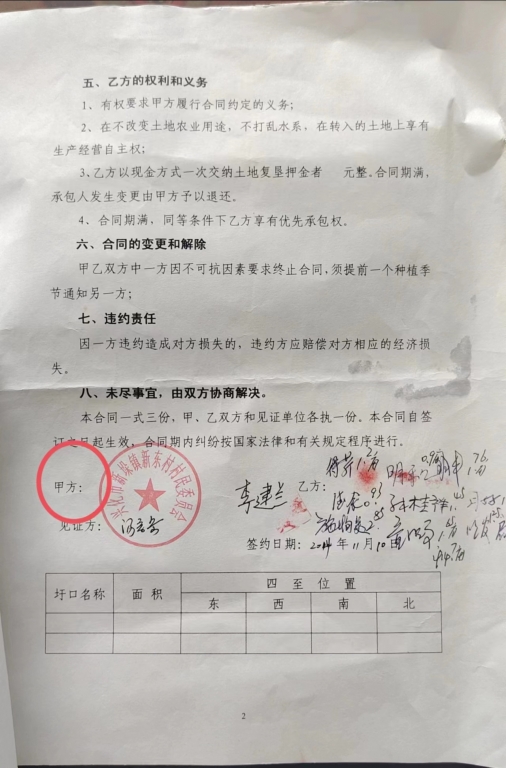 五、乙方的权利和义务
1、有权要求甲方履行合同约定的义务;
2、在不改变土地农业用途，不打乱水系，在转入的土地上享有
生产经营自主权;
3、乙方以现金方式一次交纳土地复垦押金者 元整。合同期满，
承包人发生变更由甲方予以退还。
4、合同期满，同等条件下乙方享有优先承包权。
六、合同的变更和解除
甲乙双方中一方因不可抗因素要求终止合同,须提前一个种植季
节通知另一方;
七、违约责任
因一方违约造成对方损失的，违约方应赔偿对方相应的经济损
失。
八、未尽事宜，由双方协商解决。
本合同一式三份，甲、乙双方和见证单位各执一份。本合同自签
订之日起生效，合同期内纠纷按国家法律和有关规定程序进行。
甲方: 兴化市新垛镇新东村村民委员会 李建兰 乙方:
见证方:
签约日期: 2014年11月10日
圩口名称 面积 四至位置
东 西 南 北
2